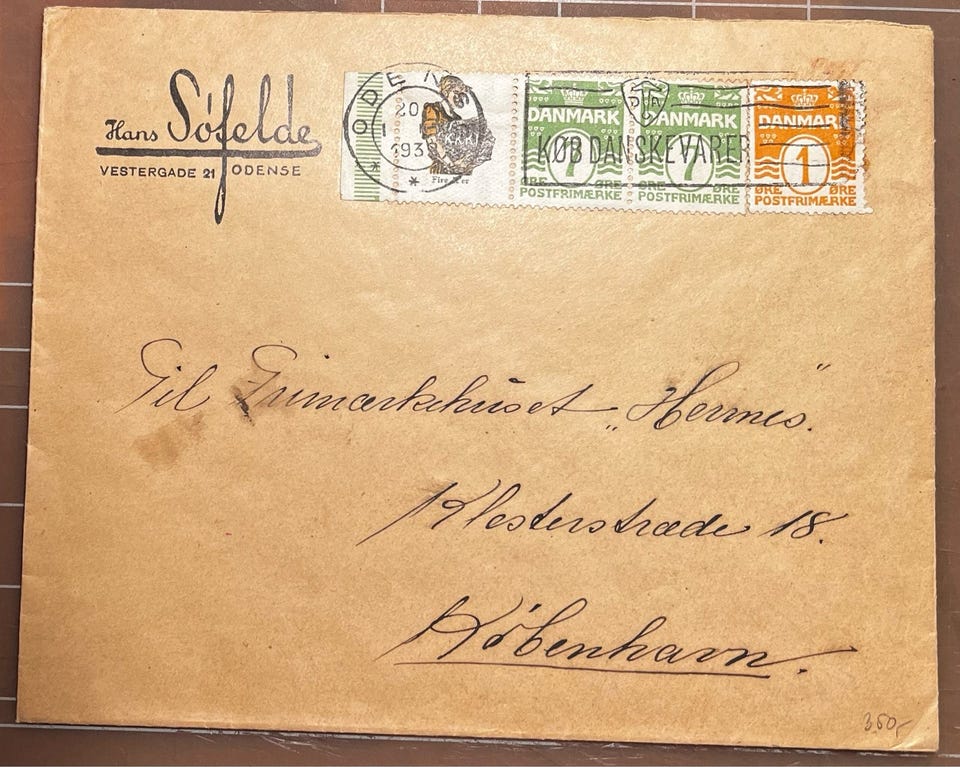 Hans Søfelde
VESTERGADE 21 ODENSE
ODENS
20
193
*
DANMARK
7
ØRE ØRE
POSTFRIMÆRKE
DANMARK
7
ØRE ØRE
POSTFRIMÆRKE
DANMARK
1
ØRE ØRE
POSTFRIMÆRKE
KØB DANSKE VARER
Til Frimærkehuset „Hermes".
Klosterstræde 18.
København.
350,-